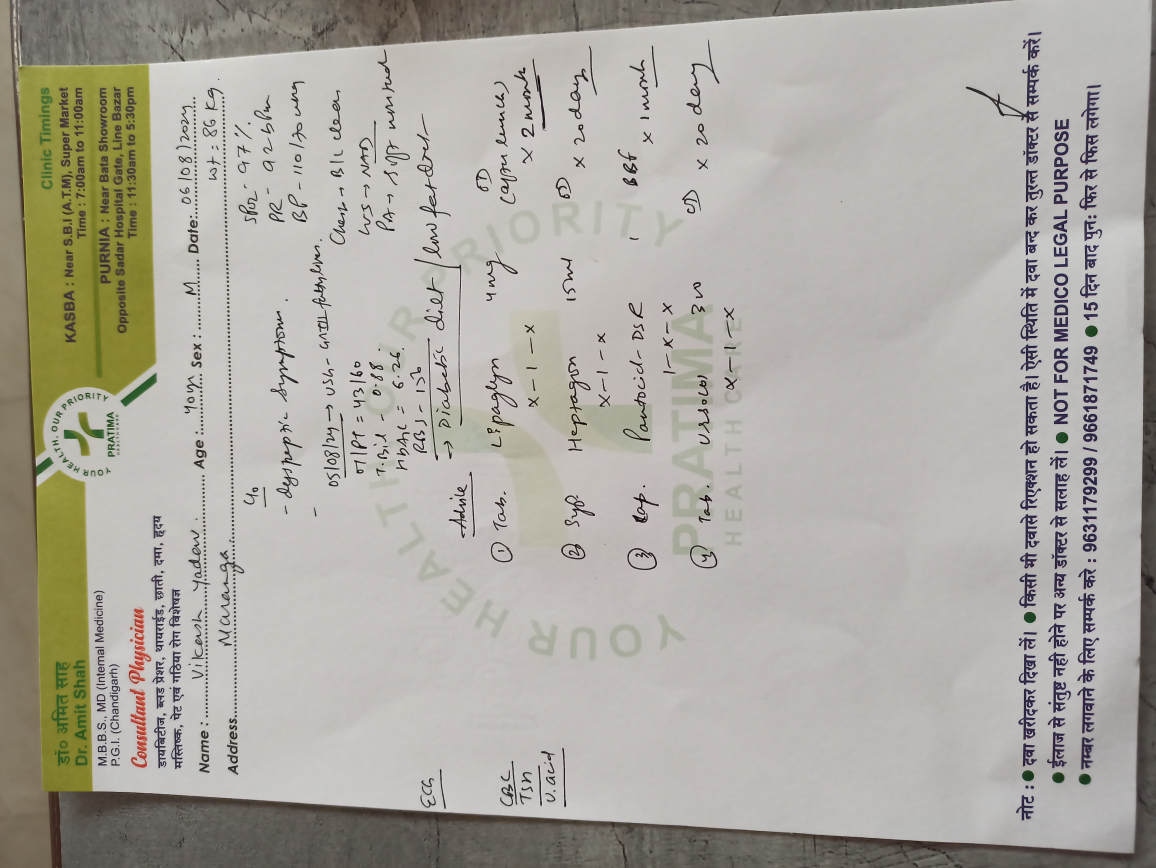 डॉ० अमित साह
Dr. Amit Shah
M.B.B.S., MD (Internal Medicine)
P.G.I. (Chandigarh)
Consultant Physician
डायबिटीज, ब्लड प्रेशर, थायराईड, छाती, दमा, हृदय
मस्तिष्क, पेट एवं गठिया रोग विशेषज्ञ
YOUR HEALTH, OUR PRIORITY
PRATIMA
HEALTHCARE
Clinic Timings
KASBA : Near S.B.I (A.T.M), Super Market
Time : 7:00am to 11:00am
PURNIA : Near Bata Showroom
Opposite Sadar Hospital Gate, Line Bazar
Time : 11:30am to 5:30pm
Name : Vikash Yadav Age : 40yr Sex : M Date: 06/08/2024
Address Maranga wt = 86 kg.
C/o
- dyspeptic symptoms.
-
SPO2 - 97%
PR - 92 bpm
BP - 110/70 mmHg
Chest → B/L clear
CVS → NAD
P/A → soft
05/08/24 → USG - fatty liver.
OT/PT = 43/60
T.Bil - 0.88
HbA1c = 6.26
RBS - 156
→ Diabetic diet / low fat diet
Advice
ECG
CBC
TSH
U. acid
① Tab. Lipaglyn 4mg OD
x - 1 - x x 2 month
② Syp. Heptagon 15ml OD
x - 1 - x x 20 days
③ Cap. Pantocid-DSR 1 BBF
1 - x - x x 1 month
④ Tab. Ursocol 300 OD
x - 1 - x x 20 days
YOUR HEALTH OUR PRIORITY
PRATIMA
HEALTH CARE
नोट : ● दवा खरीदकर दिखा लें। ● किसी भी दवासे रिएक्शन हो सकता है। ऐसी स्थिति में दवा बन्द कर तुरन्त डॉक्टर से सम्पर्क करें।
● ईलाज से संतुष्ट नही होने पर अन्य डॉक्टर से सलाह लें। ● NOT FOR MEDICO LEGAL PURPOSE
● नम्बर लगवाने के लिए सम्पर्क करे : 9631179299 / 9661871749 ● 15 दिन बाद पुनः फिर से फिस लगेगा।